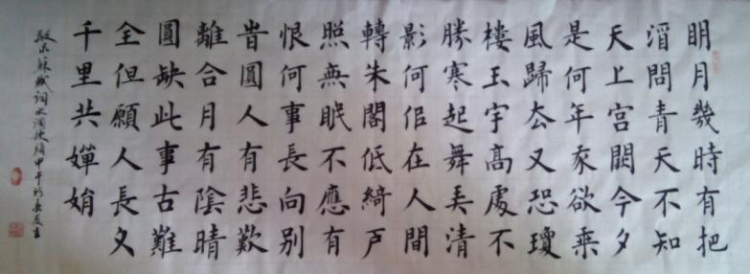 眀月幾時有把
酒問青天不知
天上宮闕今夕
是何年我欲乘
風歸去又恐瓊
樓玉宇高處不
勝寒起舞弄清
影何似在人間
轉朱閣低綺戶
照無眠不應有
恨何事長向別
旹圓人有悲歡
離合月有陰晴
圓缺此事古難
全但願人長久
千里共嬋娟
蘇軾詞水調歌頭甲午